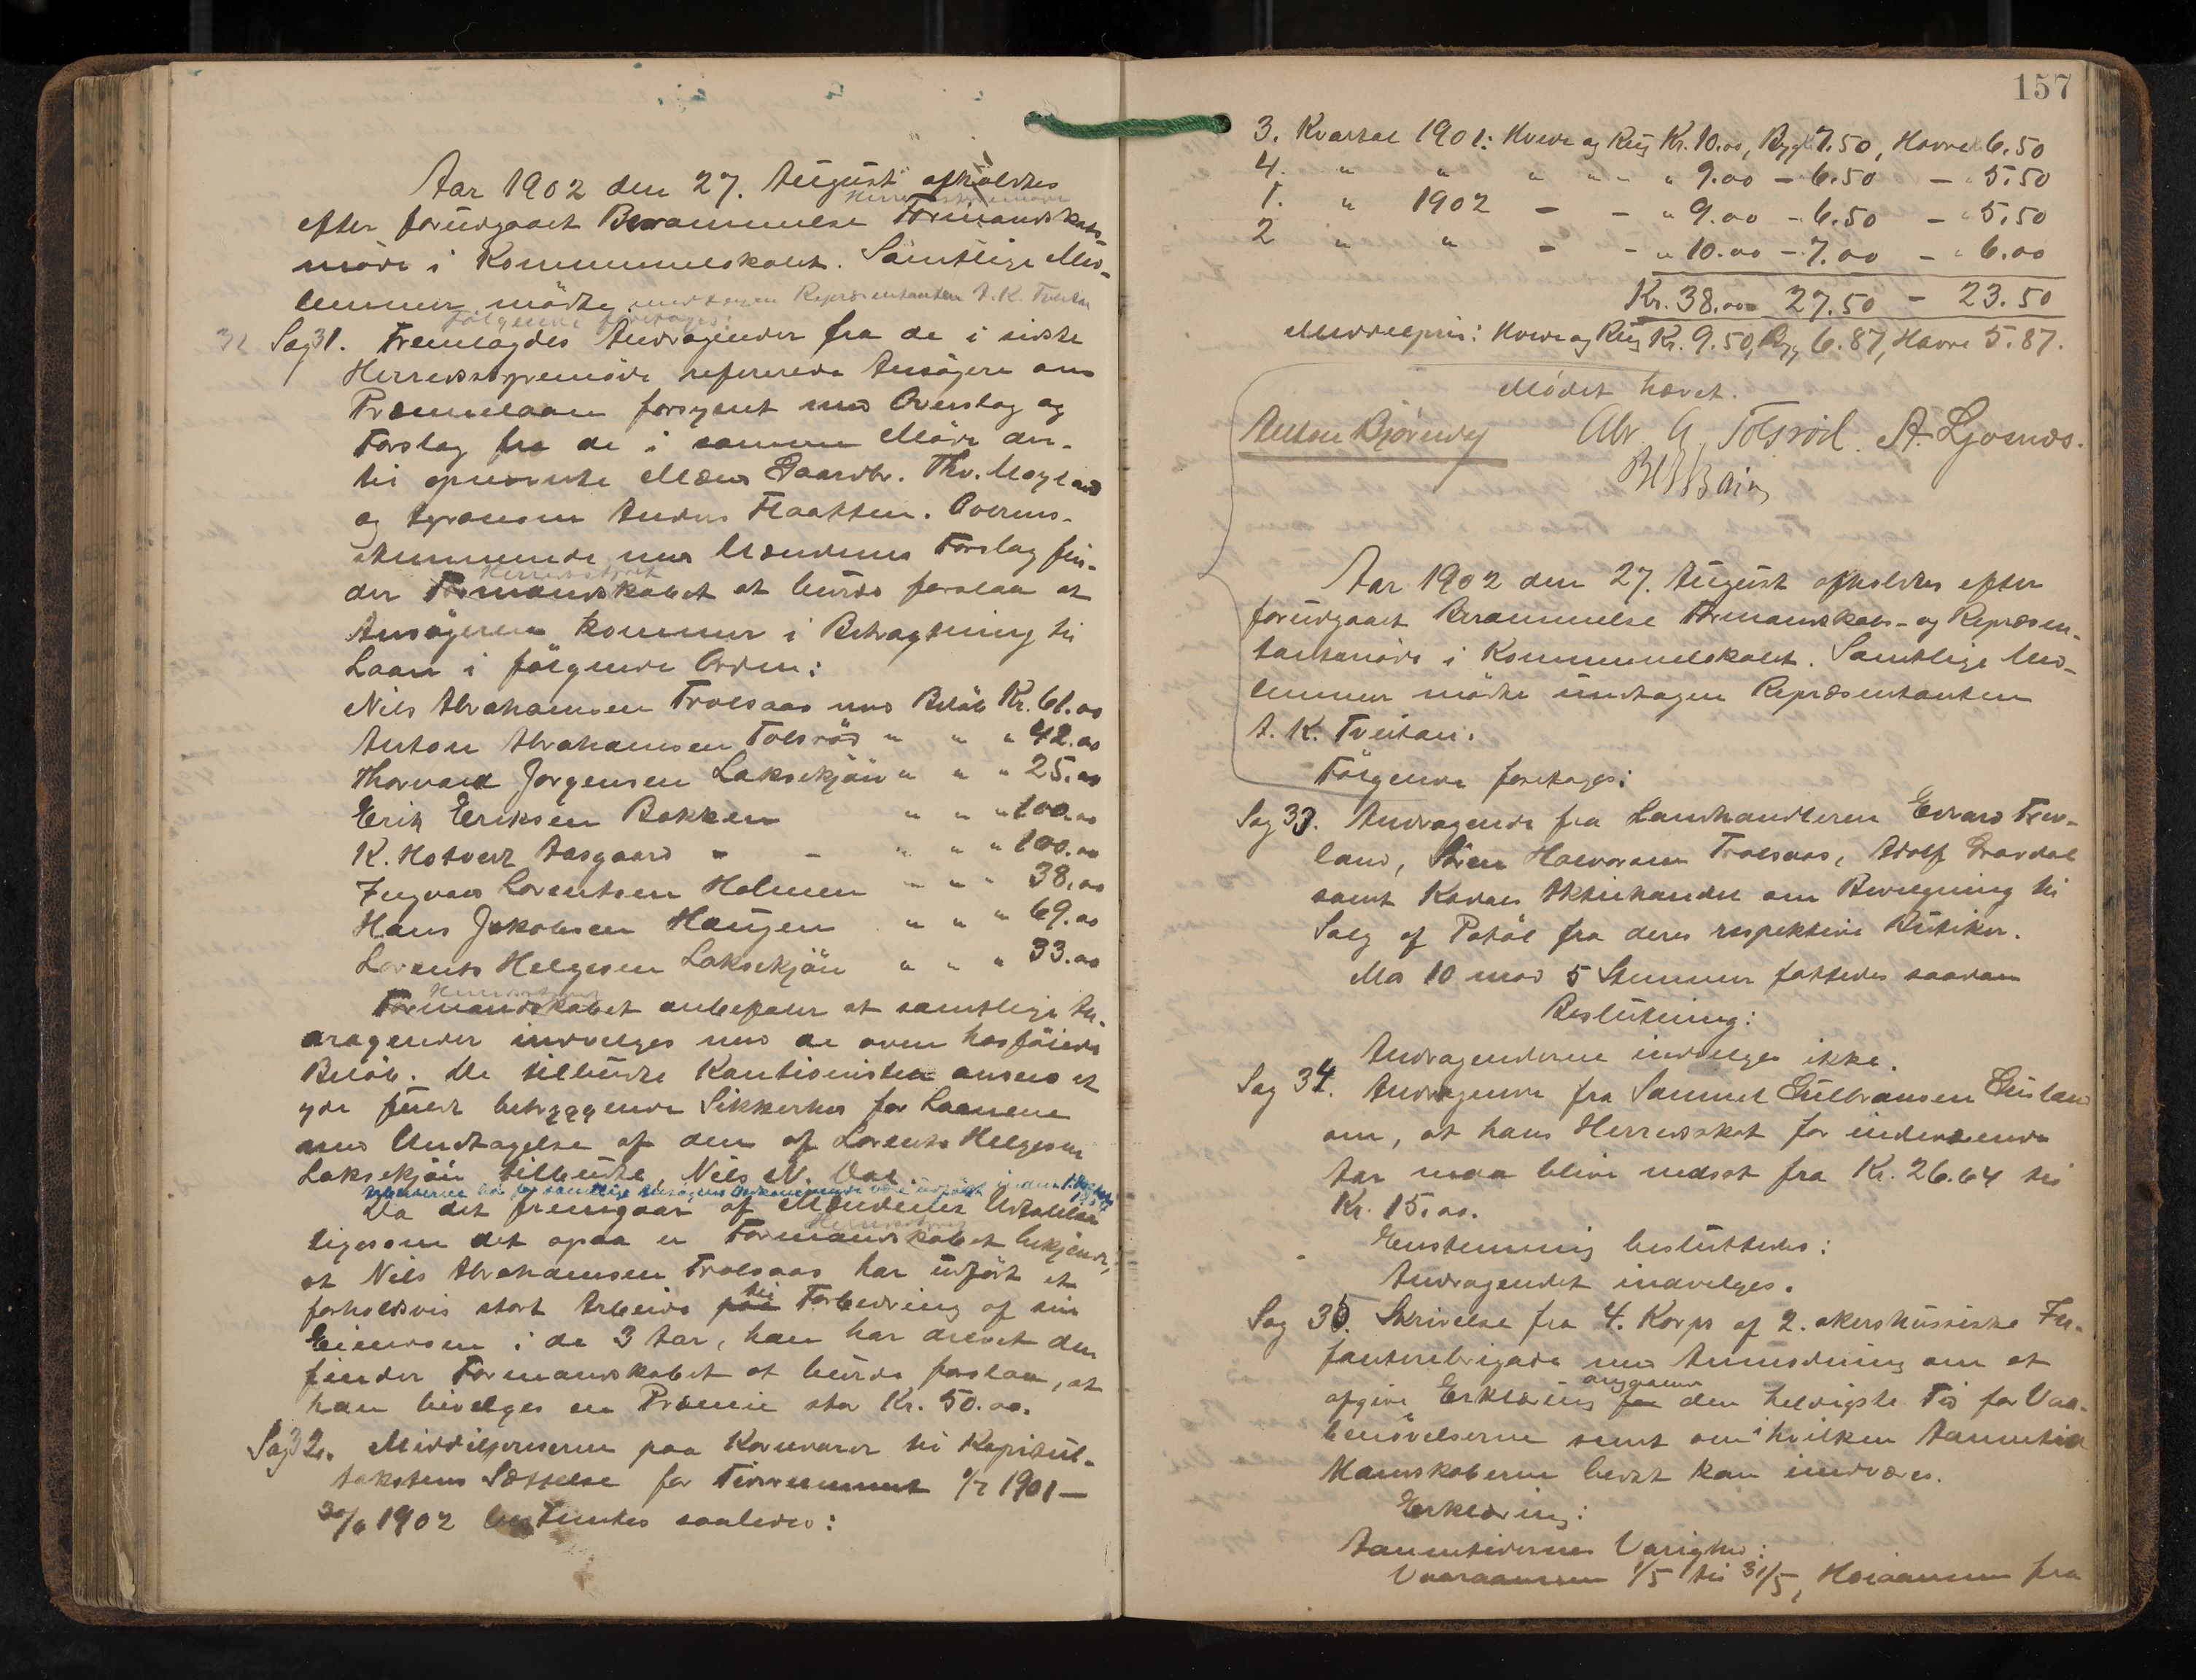 Aar 1902 den 27. August afholdtes
Herredsstyremøde
efter forudgaaet Berammelse Formandskabs-
møde i Kommunelokalet. Samtlige Med-
lemmer mødte, undtagen Repræsentanten A. K. Tveitan
Følgende foretoges:
31 Sag 31. Fremlagdes Andragender fra de i sidste
Herredsstyremøde refererede Ansøgere om
Præmielaan forsynet med Overslag og
Forslag fra de i samme Møde der-
til opnævnte Mænd Gaardbr. Thv. Moyland
og Agronom Anders Flaatten. Overens-
stemmende med Mændenes Forslag fin-
Herredsstyret
der Formandskabet at burde foreslaa at
Ansøgerne kommer i Betragtning til
Laan i følgende Orden:
Nils Abrahamsen Trolsaas med Beløb Kr. 61.00
Anton Abrahamsen Tolsrød " " " 42.00
Thorvald Jørgensen Laksekjøn " " " 25.00
Erik Eriksen Bakken " " " 100.00
K. Hotvedt Aasgaard - - " " " 100.00
Ingvald Lorentsen Holmen " " " 38.00
Hans Jakobsen Haugen " " " 69.00
Lorents Helgesen Laksekjøn " " " 33.00
Herredsstyret
Formandskabet anbefaler at samtlige An-
dragender indvilges med de oven hosføiede
Beløb. De tilbudte Kautionister ansees at
yde fuldt betryggende Sikkerhed for Laanene
med Undtagelse af den af Lorents Helgesen
Laksekjøn tilbudte Nils N. Dal.
Arbeiderne bør for samtlige Ansøgeres Vedkommende være udført inden
Da det fremgaar af Mændenes Udtalelse
Herredsstyret
ligesom det ogsaa er Formandskabet bekjendt,
at Nils Abrahamsen Trolsaas har udført et
forholdsvis stort Arbeide paa til Forbedring af sin
Eiendom i de 3 Aar, han har drevet den
finder Formandskabet at burde foreslaa, at
han bevilges en Præmie stor Kr. 50.00.
Sag 32. Middelpriserne paa Kornvarer til Kapitul-
takstens Sættelse for Tidsrummet 1/7 1901 —
30/6 1902 bestemtes saaledes:
157
3. Kvartal 1901: Hvede og Rug Kr. 10.00, Byg 7.50, Havre 6.50
4. " " " " " " 9.00 - 6.50 - " 5.50
1. " 1902 - - " 9.00 - 6.50 - " 5.50
2 " " - - " 10.00 - 7.00 - " 6.00
Kr. 38.00 - 27.50 - 23.50
Middelpris: Hvede og Rug Kr. 9.50, Byg 6.87, Havre 5.87.
Mødet hævet.
Anton Bjørndal Abr. A. Tolsrød. A. Ljosnæs.
Aar 1902 den 27. August afholdtes efter
forudgaaet Berammelse Formandskabs- og Repræsen-
tantmøde i Kommunelokalet. Samtlige Med-
lemmer mødte undtagen Repræsentanten
A. K. Tveitan.
Følgende foretoges:
Sag 33. Andragende fra Landhandlerne Edvard Trev-
land, Sören Halvorsen Trolsaas, Adolf Gravdal
samt Kodals Aktiehandel om Bevilgning til
Salg af Potøl fra deres respektive Butiker.
Med 10 mod 5 Stemmer fattedes saadan
Beslutning:
Andragenderne indvilges ikke.
Sag 34. Andragende fra Samuel Gulbransen Gusland
om, at hans Herredsskat for indeværende
Aar maa blive nedsat fra Kr. 26.64 til
Kr. 15.00.
Enstemmig besluttedes:
Andragendet indvilges.
Sag 35. Skrivelse fra 4. Korps af 2. akershusiske In-
fanteribrigade med Anmodning om at
angaaende
afgive Erklæring for den heldigste Tid for Vaa-
benøvelserne samt om i hvilken Aannetid
Mandskaberne bedst kan undværes.
Erklæring:
Aannetidernes Varighed:
Vaaraannen 1/5 til 31/5, Høiaannen fra